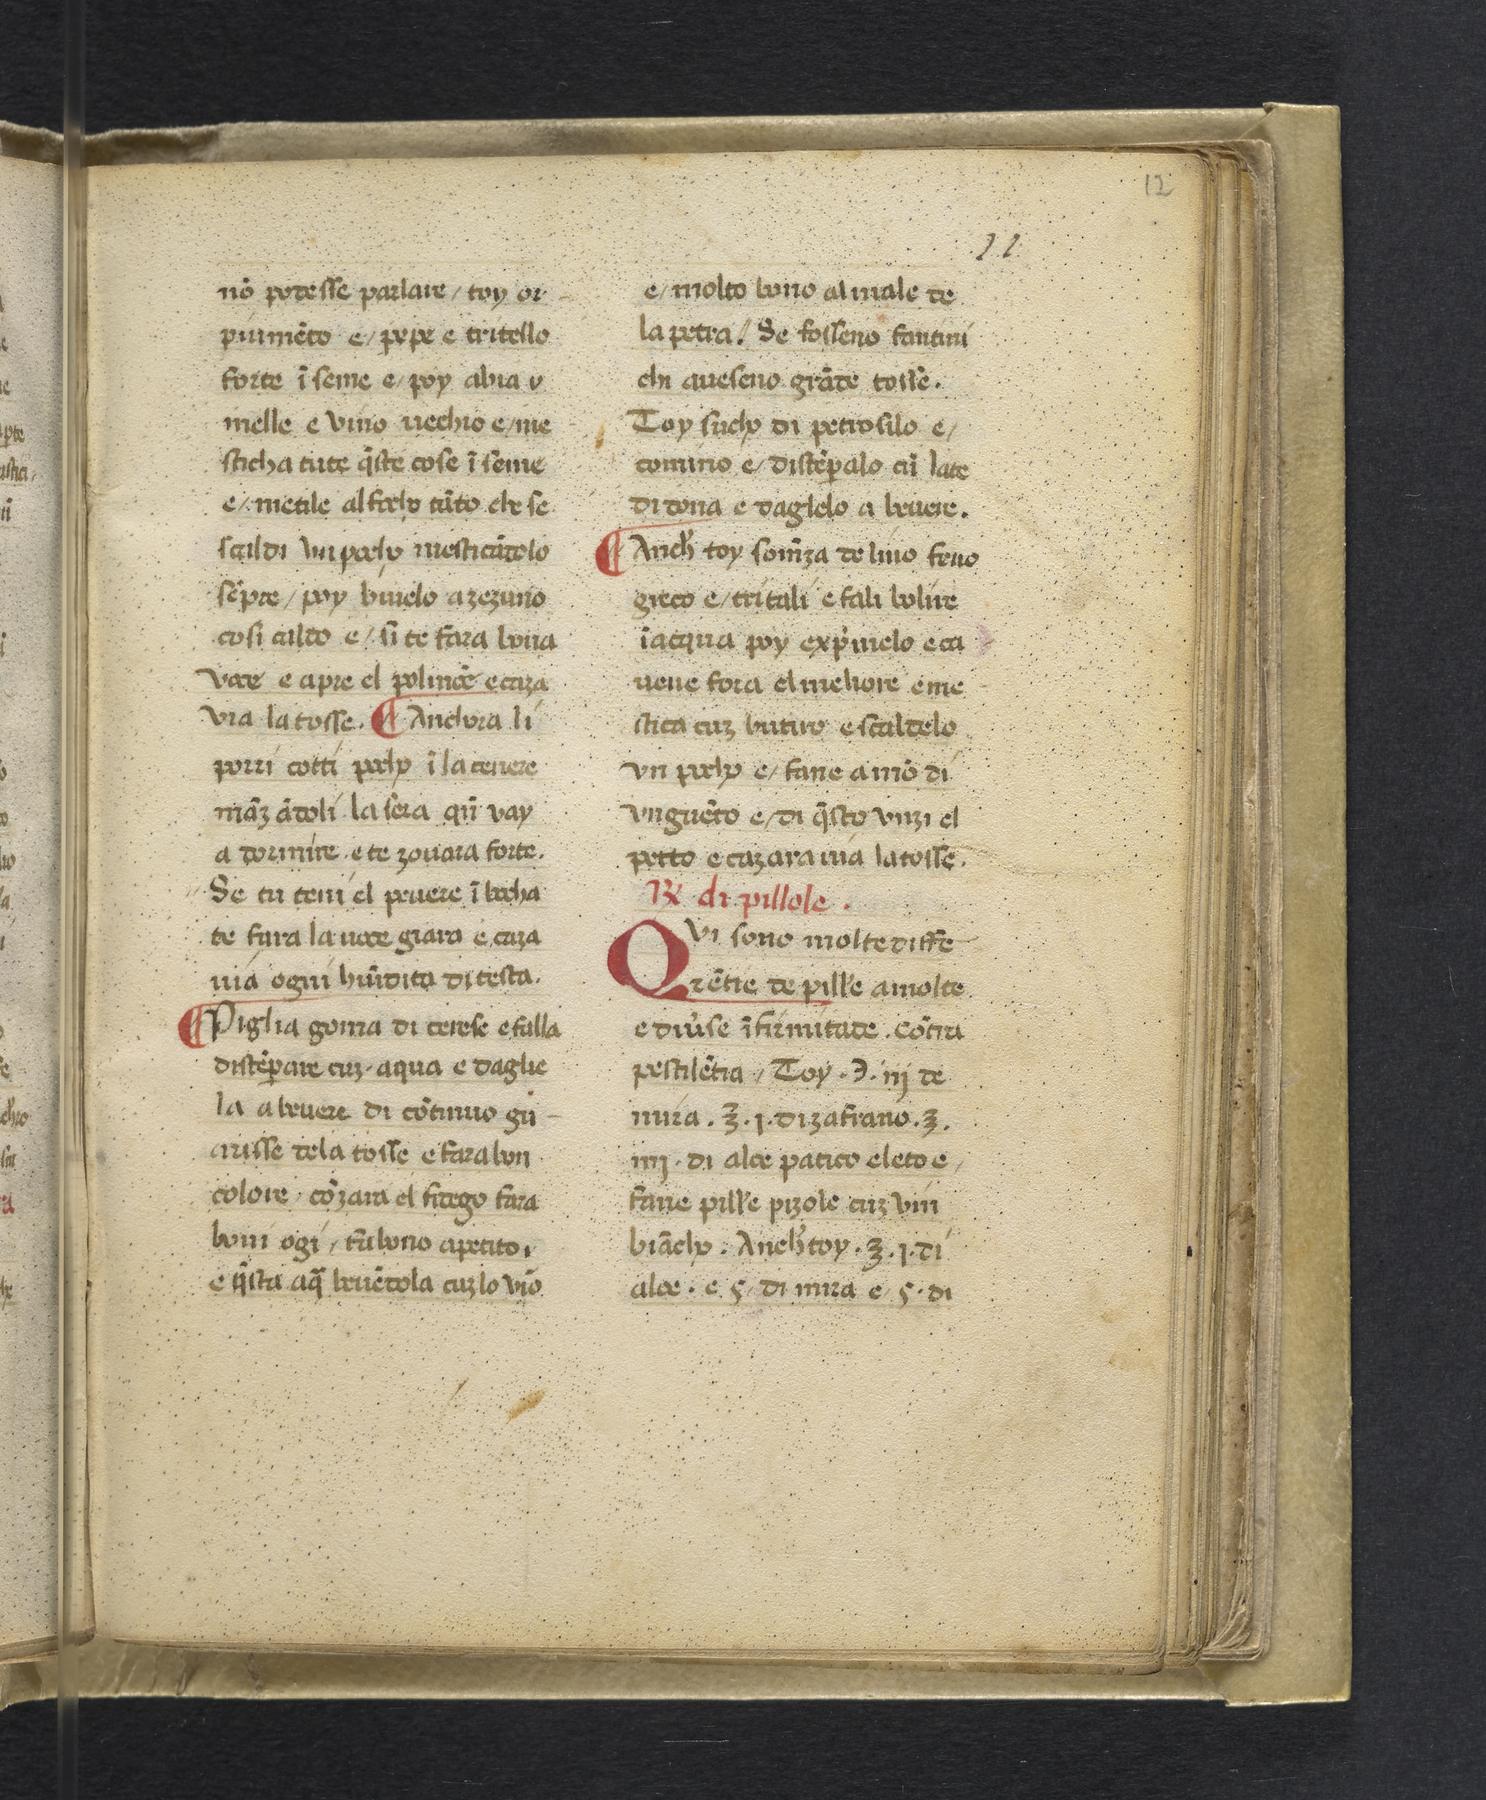 12
11
nō potesse parlare / toy or
pimmēto e / pepe e tritello
forte ī seme e / poy abia
melle e vino uechio e / me
sticha tute q̄ste cose ī seme
e / metile al focho tāto che se
scaldi vn pocho mesticādolo
sēpre / poy biuelo a zezuno
cosi caldo e / si te fara bona
voce e apre el polmōe e caza
via la tosse. ¶ Anchora li
porri cotti pocho ī la cenere
māzādoli la sera qn̄ vay
a dormire e te zouara forte.
Se tu teni el peuere ī bocha
te fara la uoce giara e caza
uia ogni hūidita di testa.
¶ Piglia goma di cerese e falla
distēpare cuz aqua e daglie
la a beuere di cōtinuo gu
arisse de la tosse e fara bon
colore / cōzara el fitego fara
boni ogi / fa bono apetito,
e q̄sta aq̄ beuēdola cuz lo vio
e / molto bono al male de
la petra / Se fosseno fantini
chi aueseno grāde tosse.
Toy sucho di petrosilo e /
comino e / distēpalo cū late
di dona e daglelo a beuere.
¶ Anch' toy somēza de lino feno
greco e / tritali e fali bolire
ī acqua poy exp'melo e ca
uene fora el meliore e me
stica cuz butiro e scaldelo
vn pocho e / fane a mō di
vnguēto e / di q̄sto vnzi el
petto e cazara uia la tosse.
℞ di pillole .
QVi sono molte diffe
rētie de pill'e a molte
e diu'se īfirmitade. Cōtra
pestilētia / Toy . ʒ. iij de
mira . ʒ . j . di zafrano . ʒ .
iiij . di aloe patico eleto e /
fane pill'e pizole cuz vin
biācho . Anch' toy . ʒ . j . di
aloe . e ς . di mira e ς . di